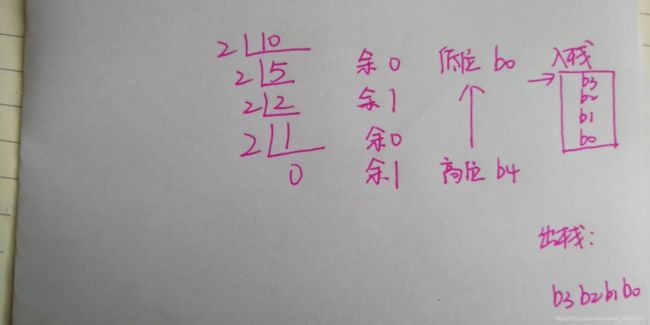 2 10 余0 低位 b0 入栈
2 5 余1 b3
2 2 余0 b2
2 1 余1 b1
0 高位 b4 b0
出栈：
b3 b2 b1 b0